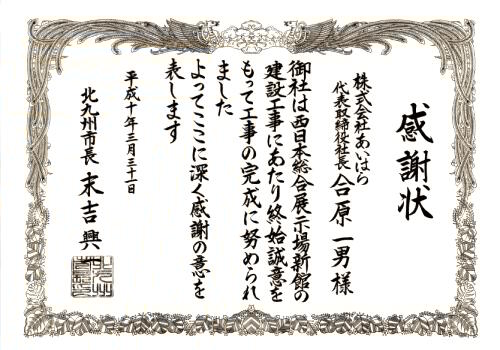 感謝状
株式会社あいはら
代表取締役社長 合原一男様
御社は西日本総合展示場新館の
建設工事にあたり終始誠意を
もって工事の完成に努められ
ました
よってここに深く感謝の意を
表します
平成十年三月三十一日
北九州市長 末吉興